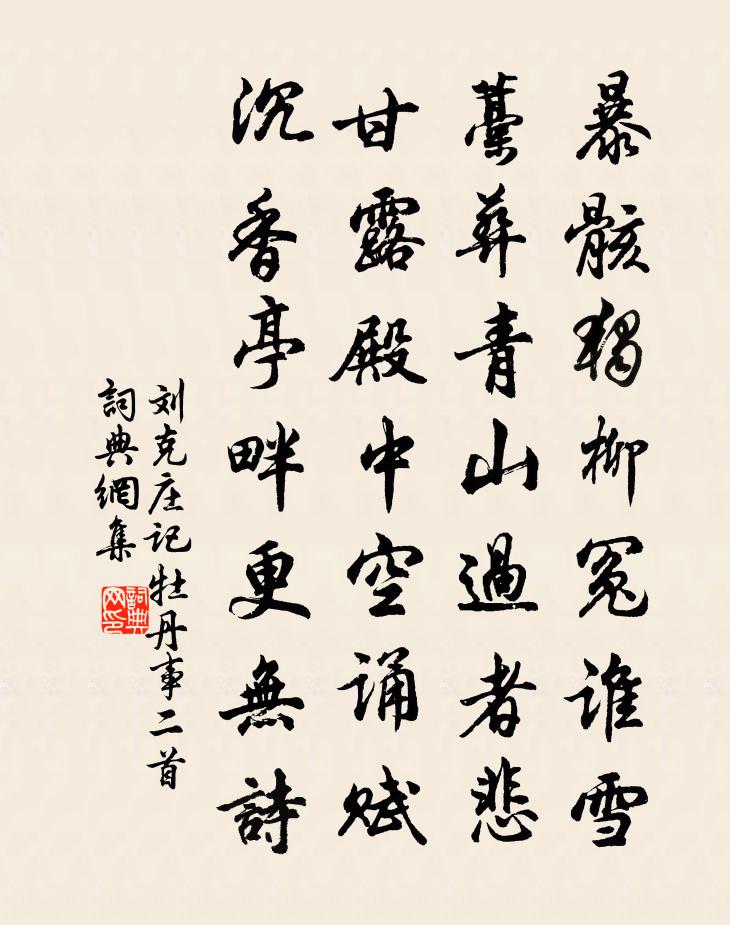 暴骸獨柳冤谁雪
藁葬青山過者悲
甘露殿中空诵赋
沉香亭畔更無詩
刘克庄记牡丹事二首
詞典網集
詞典网印